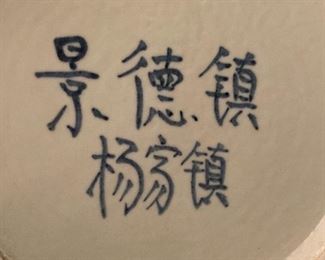 景德镇
杨家镇